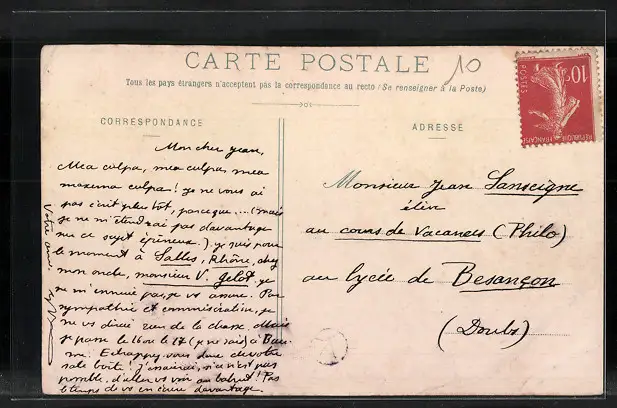 CARTE POSTALE
10
Tous les pays étrangers n'acceptent pas la correspondance au recto (Se renseigner à la Poste)
CORRESPONDANCE
Mon cher Jean,
Mea culpa, mea culpa, mea
maxuma culpa! je ne vous ai
pas écrit plus tôt, parceque .... (mais
je ne m'étendrai pas davantage
sur ce sujet épineux.) je suis pour
le moment à Salles, Rhône, chez
mon oncle, monsieur V. Gelot. je
ne m'ennuie pas, je vs assure. Par
sympathie et commisération, je
ne vs dirai rien de la chasse. Mais
je passe le 16 ou le 17 (je ne sais) à
me. Echappez vous donc de votre
sale boîte! J'essaierai, si ce n'est pas
possible, d'aller vs voir au bahut! Pas
le temps de vs en écrire davantage.
Votre ami
ADRESSE
Monsieur Jean Lanseigne
élève
au cours de vacances (Philo)
au lycée de Besançon
(Doubs)
10c
POSTES
RÉPUBLIQUE FRANÇAISE